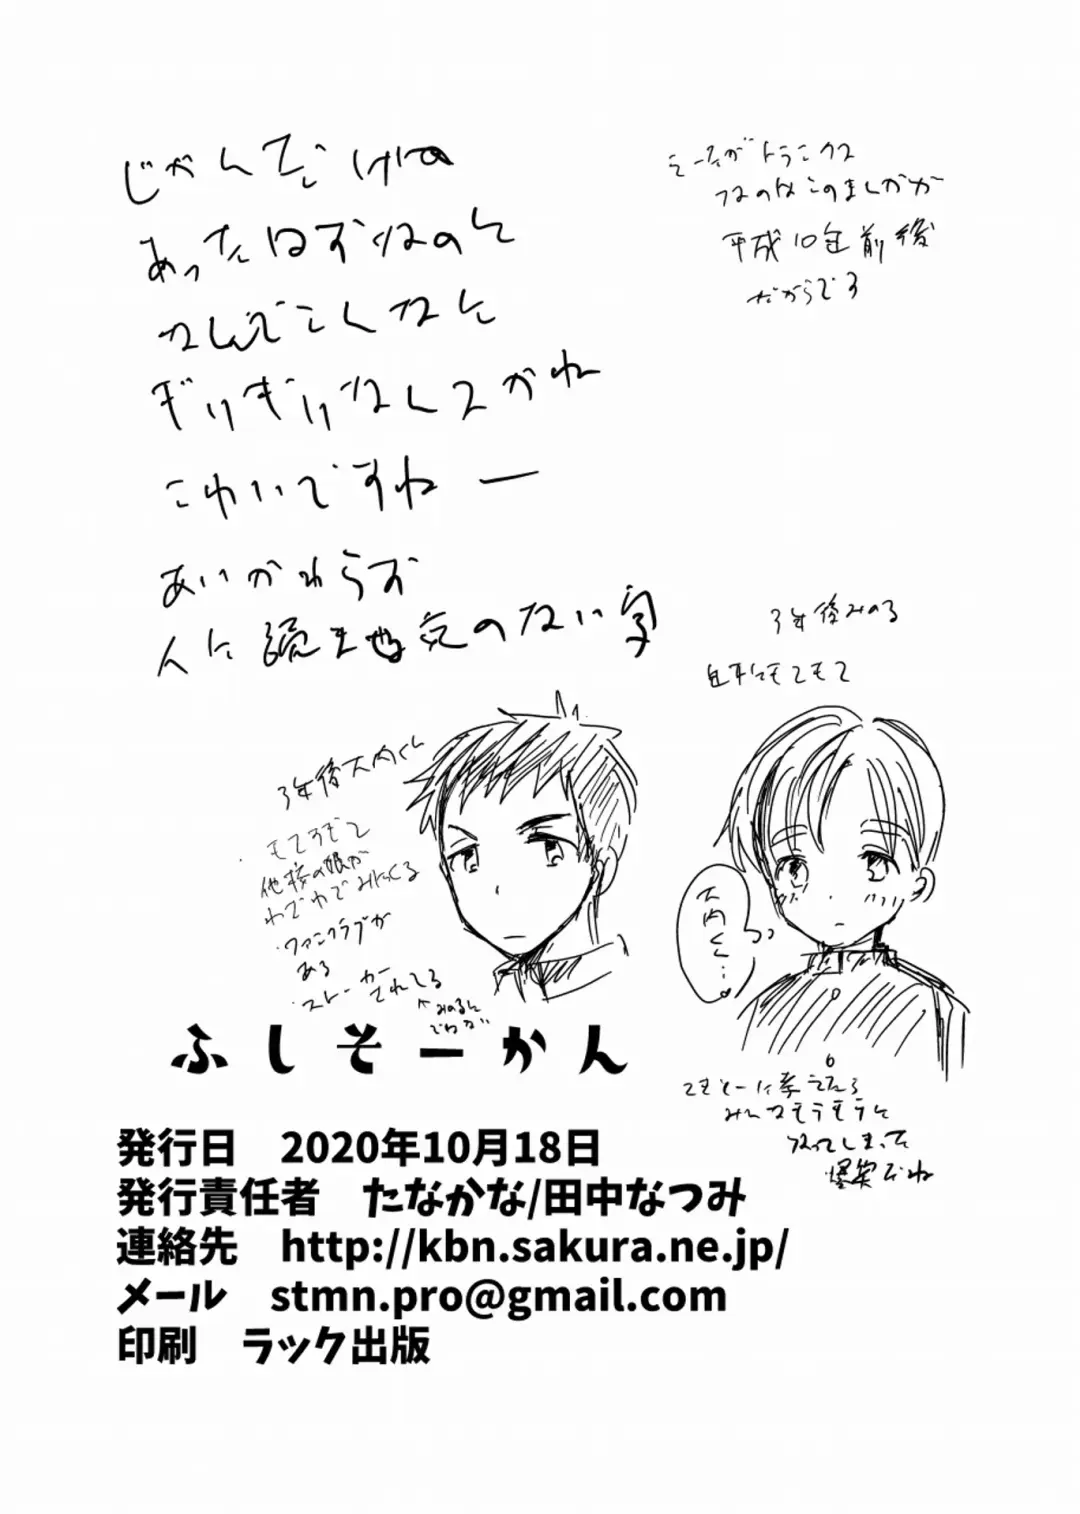 あったはずなのに
なんでこんなに
ぎりぎりなんスかね
こわいですねー
あいかわらず
人に読ませる気のない字
トランクス
なのはこのまんがが
平成10年前後
だからです
3年後みのる
3年後大内くん
もてすぎて
他校の娘が
わざわざみにくる
・ファンクラブが
ある
・ストーカーされてる
大内くん…
てきとーに考えたら
みんなモテモテに
なってしまった
ふしそーかん
発行日 2020年10月18日
発行責任者 たなかな/田中なつみ
連絡先 http://kbn.sakura.ne.jp/
メール stmn.pro@gmail.com
印刷 ラック出版